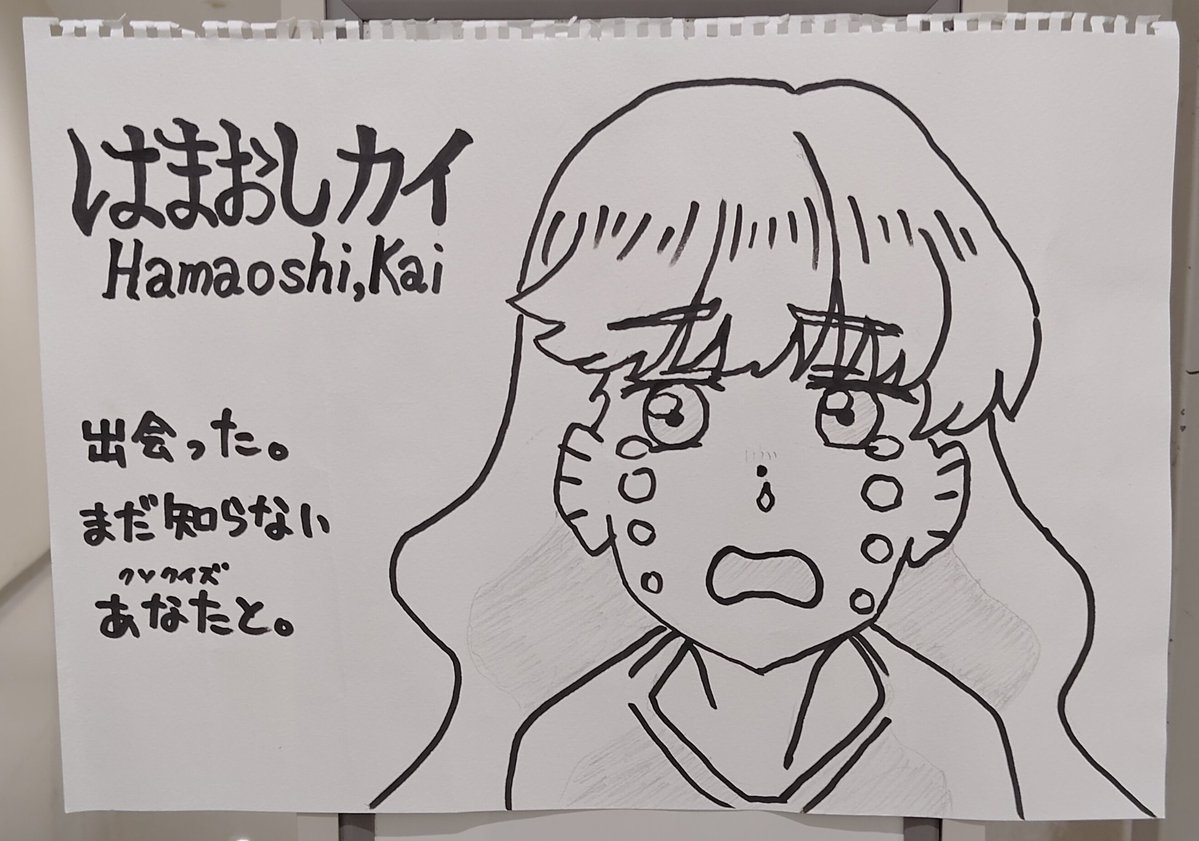 はまおしカイ
Hamaoshi,Kai
出会った。
まだ知らない
クソクイズ
あなたと。